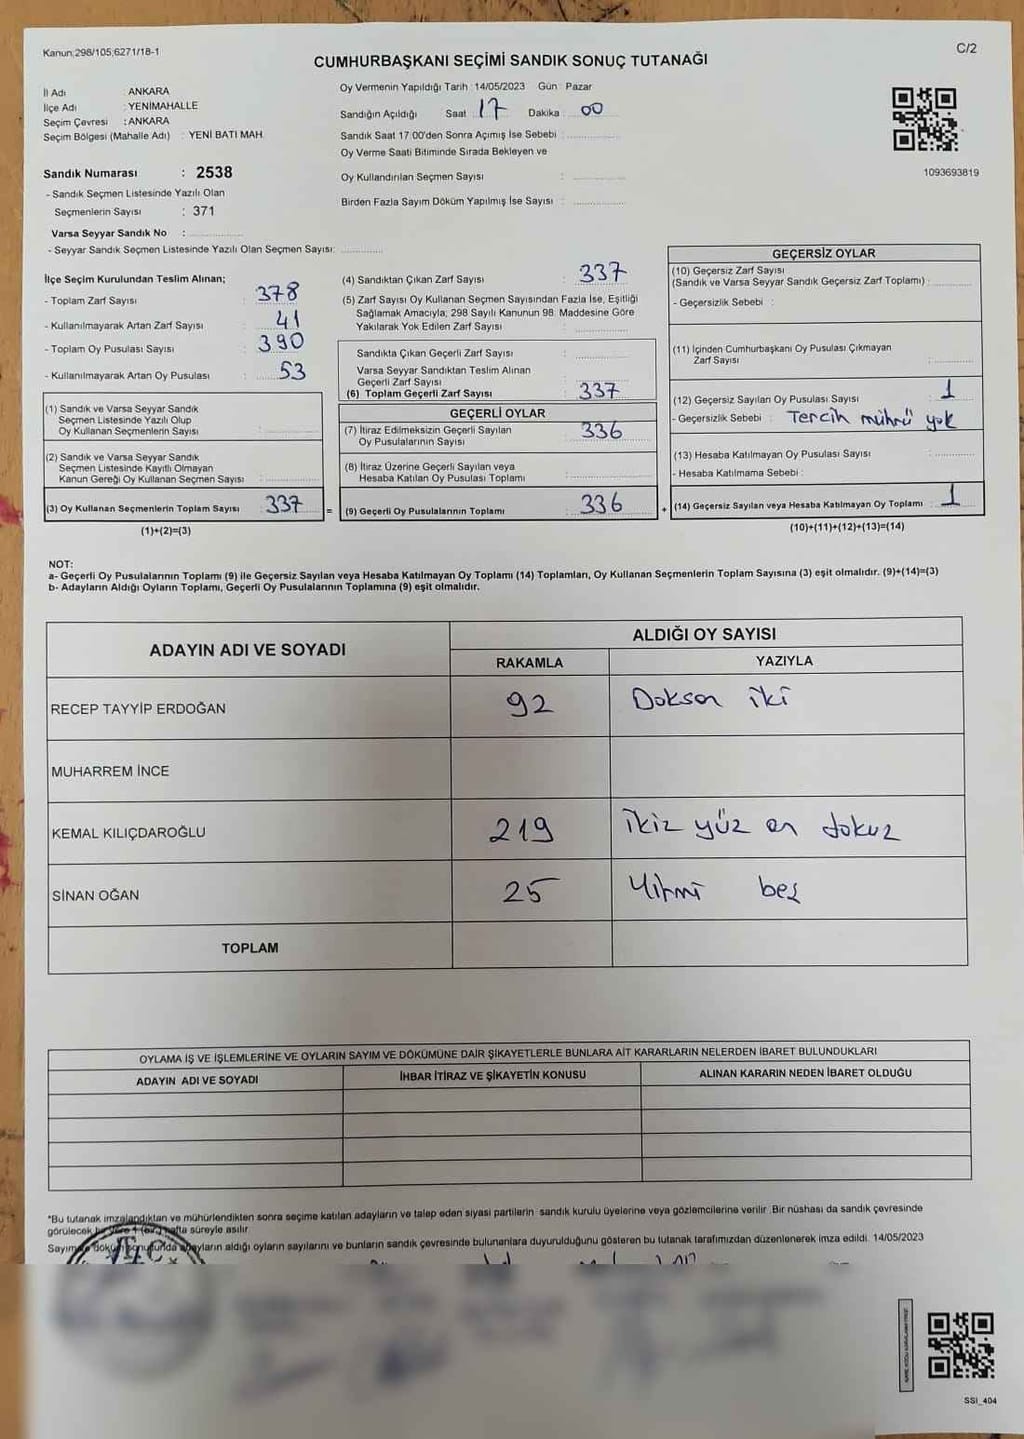 Kanun;298/105;6271/18-1
C/2
CUMHURBAŞKANI SEÇİMİ SANDIK SONUÇ TUTANAĞI
İl Adı : ANKARA
İlçe Adı : YENİMAHALLE
Seçim Çevresi : ANKARA
Seçim Bölgesi (Mahalle Adı) : YENİ BATI MAH.
Oy Vermenin Yapıldığı Tarih : 14/05/2023 Gün : Pazar
Sandığın Açıldığı Saat 17 Dakika 00
Sandık Saat 17:00'den Sonra Açımış İse Sebebi :
Oy Verme Saati Bitiminde Sırada Bekleyen ve
Oy Kullandırılan Seçmen Sayısı :
Birden Fazla Sayım Döküm Yapılmış İse Sayısı :
1093693819
Sandık Numarası : 2538
- Sandık Seçmen Listesinde Yazılı Olan
Seçmenlerin Sayısı : 371
Varsa Seyyar Sandık No :
- Seyyar Sandık Seçmen Listesinde Yazılı Olan Seçmen Sayısı:
İlçe Seçim Kurulundan Teslim Alınan;
- Toplam Zarf Sayısı : 378
- Kullanılmayarak Artan Zarf Sayısı : 41
- Toplam Oy Pusulası Sayısı : 390
- Kullanılmayarak Artan Oy Pusulası : 53
(1) Sandık ve Varsa Seyyar Sandık
Seçmen Listesinde Yazılı Olup
Oy Kullanan Seçmenlerin Sayısı :
(2) Sandık ve Varsa Seyyar Sandık
Seçmen Listesinde Kayıtlı Olmayan
Kanun Gereği Oy Kullanan Seçmen Sayısı :
(3) Oy Kullanan Seçmenlerin Toplam Sayısı : 337
(1)+(2)=(3)
(4) Sandıktan Çıkan Zarf Sayısı : 337
(5) Zarf Sayısı Oy Kullanan Seçmen Sayısından Fazla İse, Eşitliği
Sağlamak Amacıyla; 298 Sayılı Kanunun 98. Maddesine Göre
Yakılarak Yok Edilen Zarf Sayısı :
Sandıkta Çıkan Geçerli Zarf Sayısı :
Varsa Seyyar Sandıktan Teslim Alınan
Geçerli Zarf Sayısı :
(6) Toplam Geçerli Zarf Sayısı : 337
GEÇERLİ OYLAR
(7) İtiraz Edilmeksizin Geçerli Sayılan
Oy Pusulalarının Sayısı : 336
(8) İtiraz Üzerine Geçerli Sayılan veya
Hesaba Katılan Oy Pusulası Toplamı :
= (9) Geçerli Oy Pusulalarının Toplamı : 336
GEÇERSİZ OYLAR
(10) Geçersiz Zarf Sayısı
(Sandık ve Varsa Seyyar Sandık Geçersiz Zarf Toplamı) :
- Geçersizlik Sebebi :
(11) İçinden Cumhurbaşkanı Oy Pusulası Çıkmayan
Zarf Sayısı :
(12) Geçersiz Sayılan Oy Pusulası Sayısı : 1
- Geçersizlik Sebebi : Tercih mührü yok
(13) Hesaba Katılmayan Oy Pusulası Sayısı :
- Hesaba Katılmama Sebebi :
+ (14) Geçersiz Sayılan veya Hesaba Katılmayan Oy Toplamı : 1
(10)+(11)+(12)+(13)=(14)
NOT:
a- Geçerli Oy Pusulalarının Toplamı (9) ile Geçersiz Sayılan veya Hesaba Katılmayan Oy Toplamı (14) Toplamları, Oy Kullanan Seçmenlerin Toplam Sayısına (3) eşit olmalıdır. (9)+(14)=(3)
b- Adayların Aldığı Oyların Toplamı, Geçerli Oy Pusulalarının Toplamına (9) eşit olmalıdır.
ADAYIN ADI VE SOYADI
ALDIĞI OY SAYISI
RAKAMLA YAZIYLA
RECEP TAYYİP ERDOĞAN 92 Doksan iki
MUHARREM İNCE
KEMAL KILIÇDAROĞLU 219 ikiz yüz on dokuz
SİNAN OĞAN 25 Yirmi beş
TOPLAM
OYLAMA İŞ VE İŞLEMLERİNE VE OYLARIN SAYIM VE DÖKÜMÜNE DAİR ŞİKAYETLERLE BUNLARA AİT KARARLARIN NELERDEN İBARET BULUNDUKLARI
ADAYIN ADI VE SOYADI İHBAR İTİRAZ VE ŞİKAYETİN KONUSU ALINAN KARARIN NEDEN İBARET OLDUĞU
*Bu tutanak imzalandıktan ve mühürlendikten sonra seçime katılan adayların ve talep eden siyasi partilerin sandık kurulu üyelerine veya gözlemcilerine verilir. Bir nüshası da sandık çevresinde
görülecek bir yere 1 (bir) hafta süreyle asılır.
Sayım ve döküm sonunda adayların aldığı oyların sayılarını ve bunların sandık çevresinde bulunanlara duyurulduğunu gösteren bu tutanak tarafımızdan düzenlenerek imza edildi. 14/05/2023
T.C.
SSİ_404